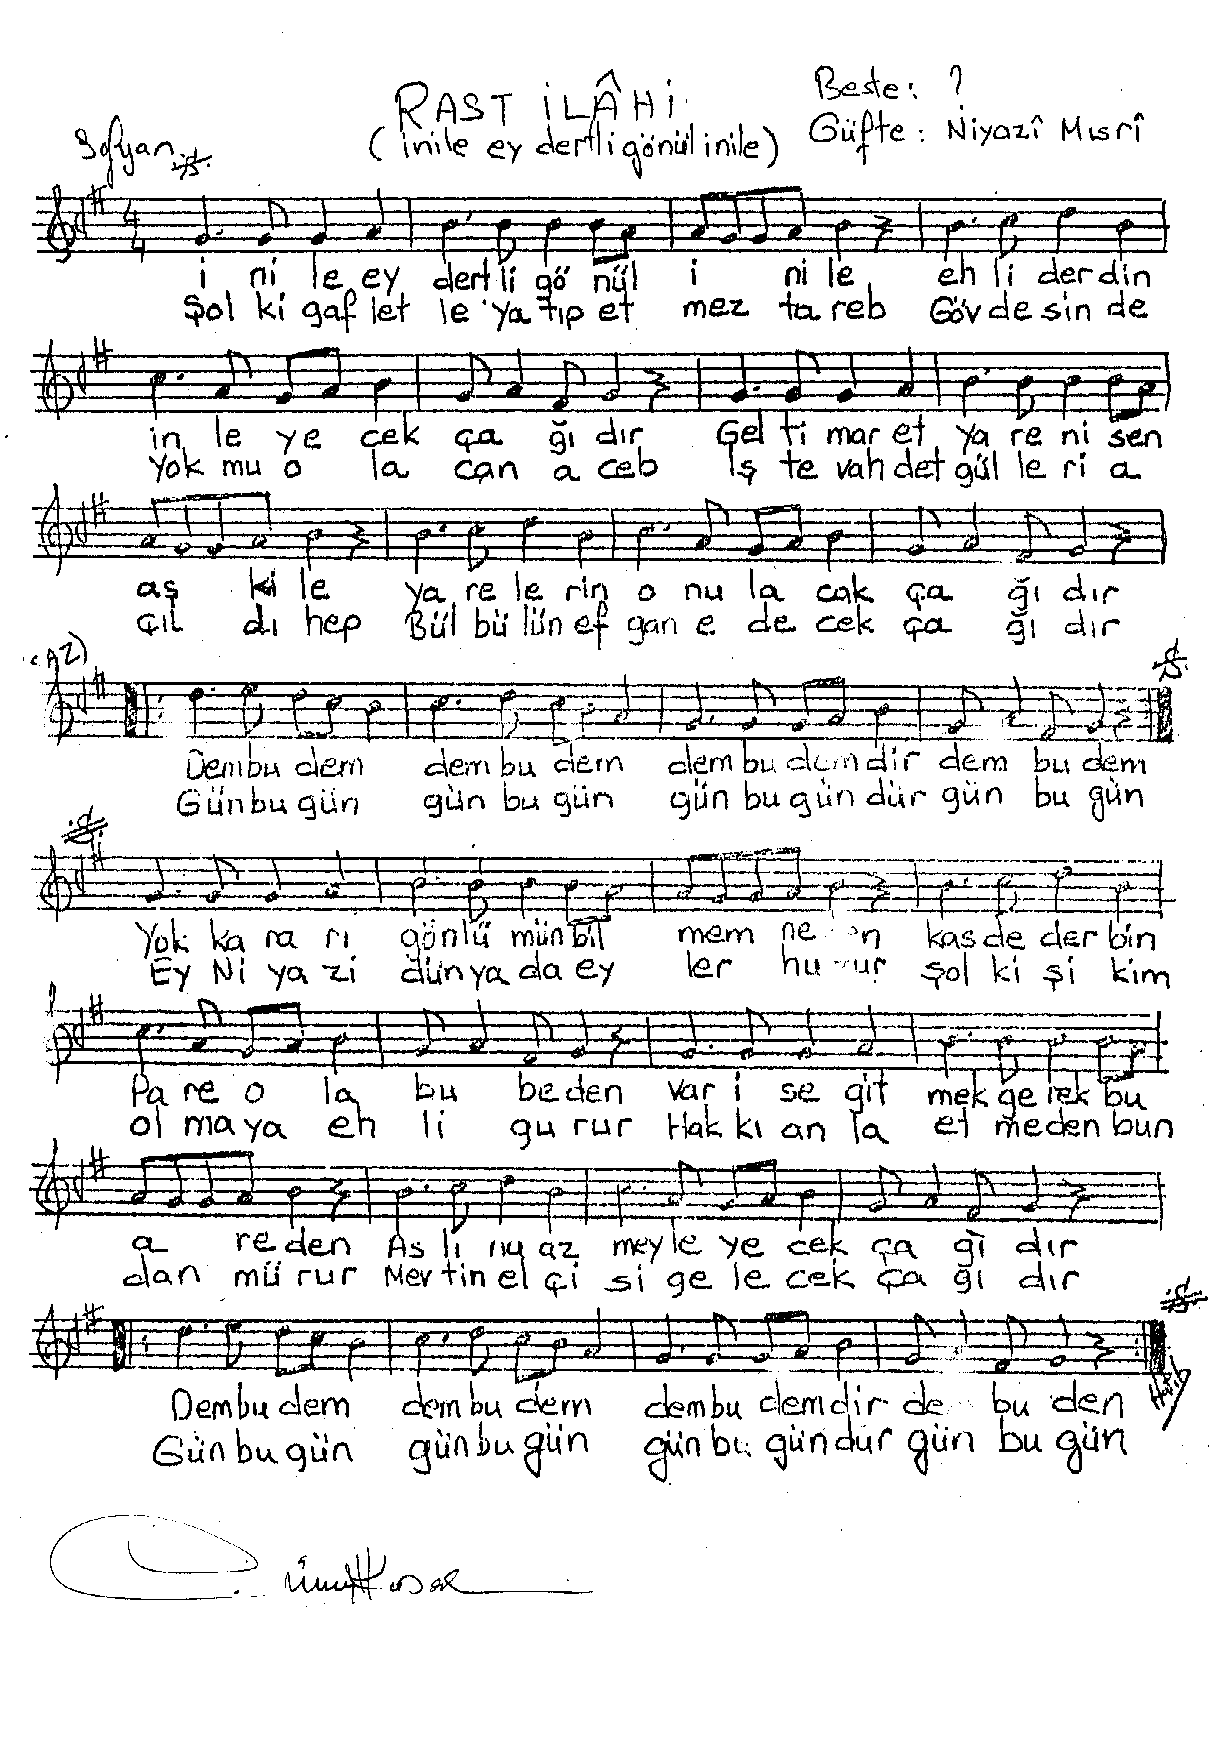 RAST İLÂHİ
Beste: ?
(inile ey dertli gönül inile)
Güfte: Niyazî Mısrî
Sofyan
4 4
i ni le ey dertli gö nül i ni le eh li derdin
Şol ki gaf let le ya tıp et mez ta reb Göv de sin de
in le ye cek ça ğı dır Gel ti mar et ya re ni sen
Yok mu o la can a ceb İş te vah det gül le ri a
aş ki le ya re le rin o nu la cak ça ğı dır
çıl dı hep Bül bü lün ef gan e de cek ça ğı dır
(AZ)
Dem bu dem dem bu dem dem bu dem dir dem bu dem
Gün bu gün gün bu gün gün bu gün dür gün bu gün
Yok ka ra rı gönlü mün bil mem kas de der bin
Ey Ni ya zi dün ya da ey ler şol ki şi kim
Pa re o la bu be den var i se git mek ge rek bu
ol ma ya eh li gu rur Hak kı an la et meden bun
a re den As lı nu az mey le ye cek ça ğı dır
dan mü rur Mev tin el çi si ge le cek ça ğı dır
Dem bu dem dem bu dem dem bu dem dir bu den
Gün bu gün gün bu gün gün bu gün dür gün bu gün